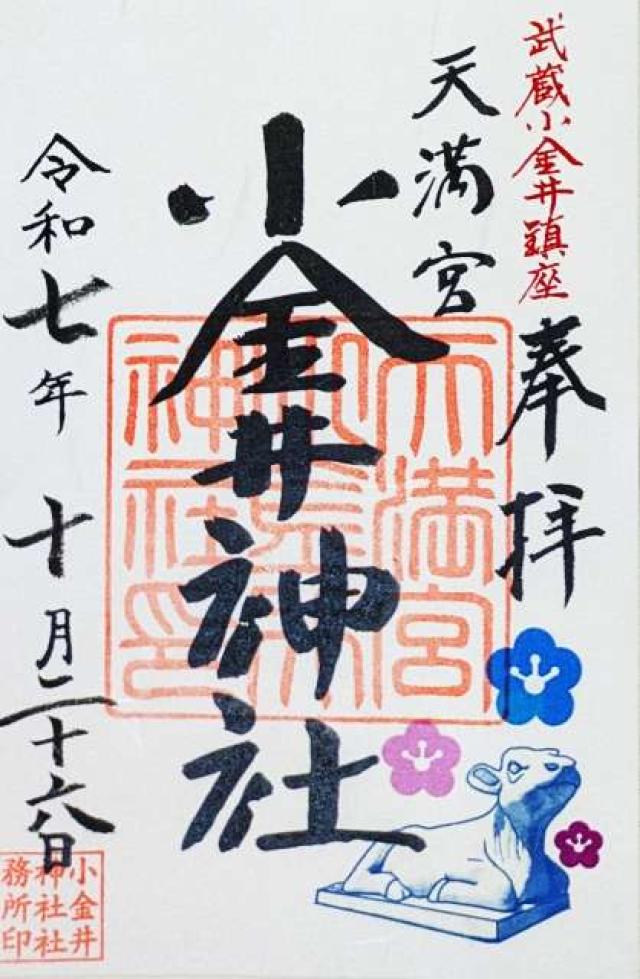 武蔵小金井鎮座
奉拝
天満宮
小金井神社
令和七年 十月二十六日
天満宮
神社印
小金井
神社社
務所印